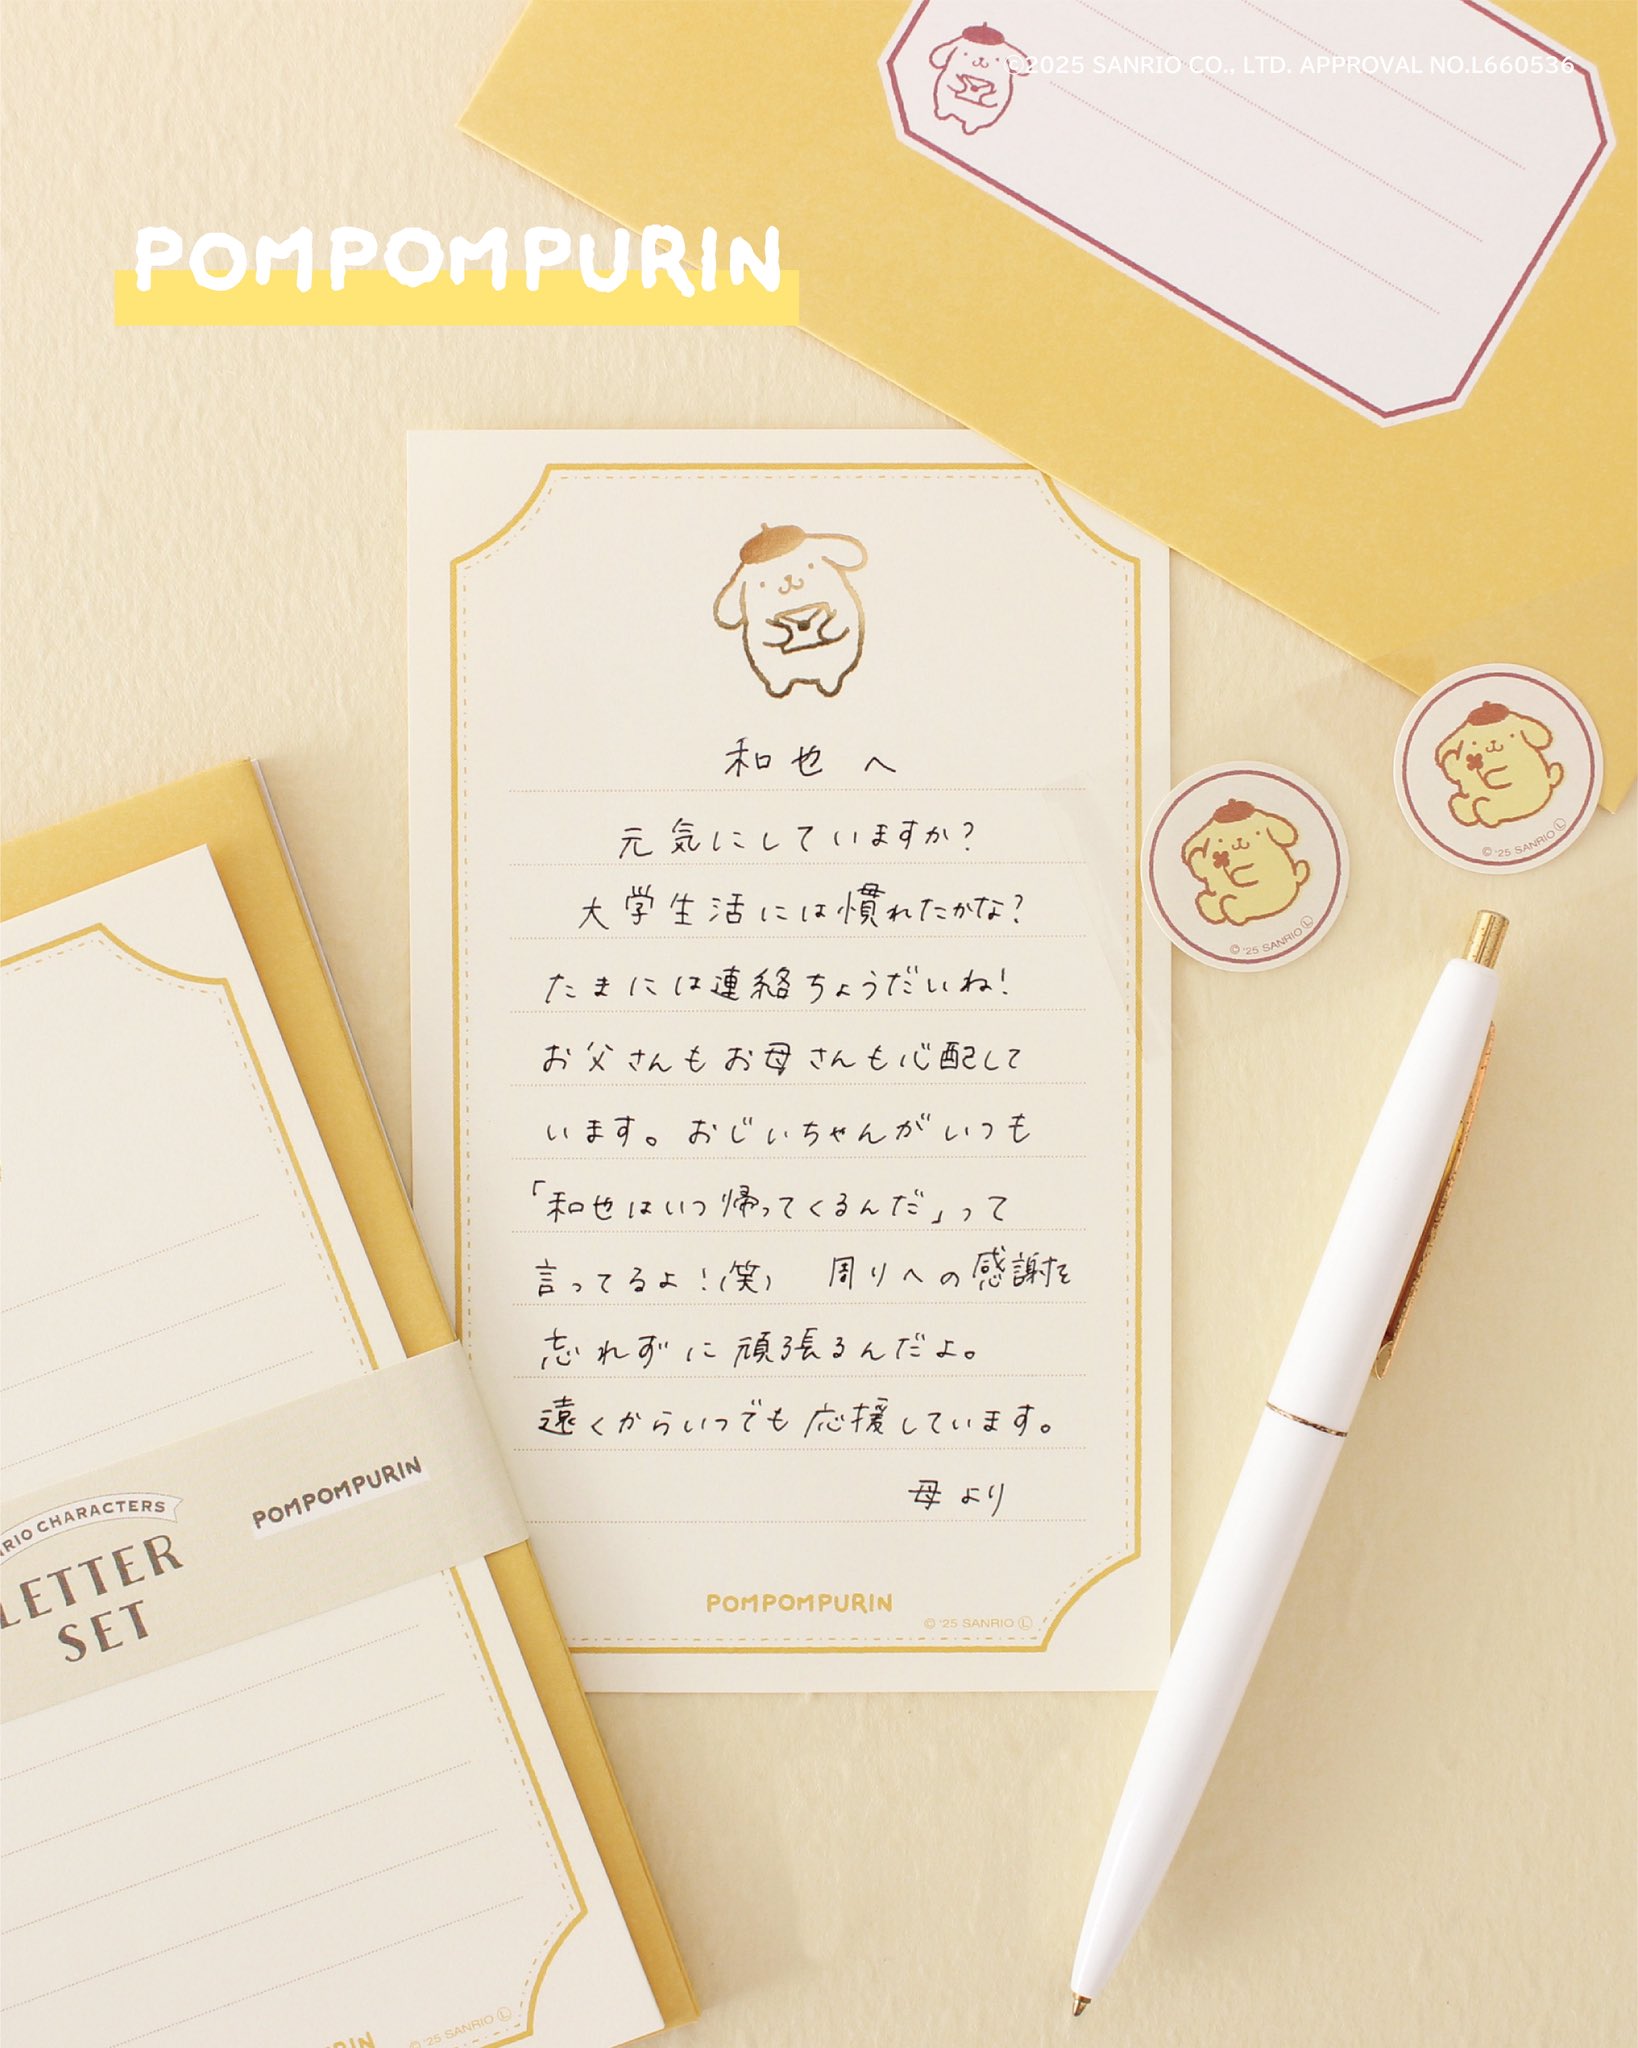 ©2025 SANRIO CO., LTD. APPROVAL NO.L660536
POMPOMPURIN
和也へ
元気にしていますか?
大学生活には慣れたかな?
たまには連絡ちょうだいね!
お父さんもお母さんも心配して
います。おじいちゃんがいつも
「和也はいつ帰ってくるんだ」って
言ってるよ!(笑) 周りへの感謝を
忘れずに頑張るんだよ。
遠くからいつでも応援しています。
母より
POMPOMPURIN
© '25 SANRIO Ⓛ
© '25 SANRIO Ⓛ
© '25 SANRIO Ⓛ
CHARACTERS
LETTER
SET
POMPOMPURIN
© '25 SANRIO Ⓛ